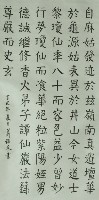 自麻姑發迹於茲嶺南真遺壇
於龜源花姑表異於井山今女道士
黎瓊仙年八十而容色益少曾妙
行夢瓊仙而飡華絕粒紫陽姪男
德誠繼修香火弟子譚仙巖法籙
尊嚴而史玄